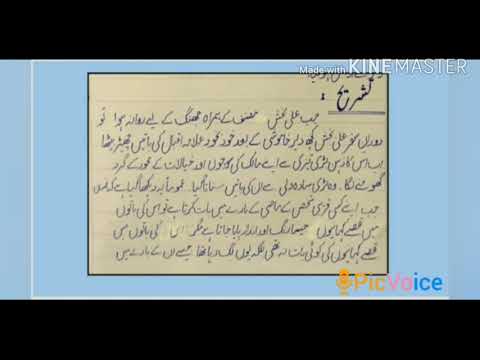 Made with KINEMASTER
تشریح :
جب علی بخش مصنف کے ہمراہ جھنگ کے لیے روانہ ہوا تو
دوران سفر علی بخش کچھ دیر خاموشی کے بعد خود بخود علامہ اقبال کی باتیں چھیڑ بیٹھا
اب اس کا ذہن بڑی تیزی سے اپنے مالک کی سوچوں اور خیالات کے محور کے گرد
گھومنے لگا۔ وہ بڑی سادہ دلی سے ان کی باتیں سناتا گیا۔ عموماً یہ دیکھا گیا ہے کہ انسان
جب اپنے کسی قریبی شخص کے ماضی کے بارے میں بات کرتا ہے تو اس کی باتوں
میں قصے کہانیوں جیسا رنگ اور انداز پایا جاتا ہے مگر اس کی باتوں میں
قصے کہانیوں کی کوئی بات نہ تھی بلکہ یوں لگ رہا تھا جیسے ان کے بارے میں
PicVoice